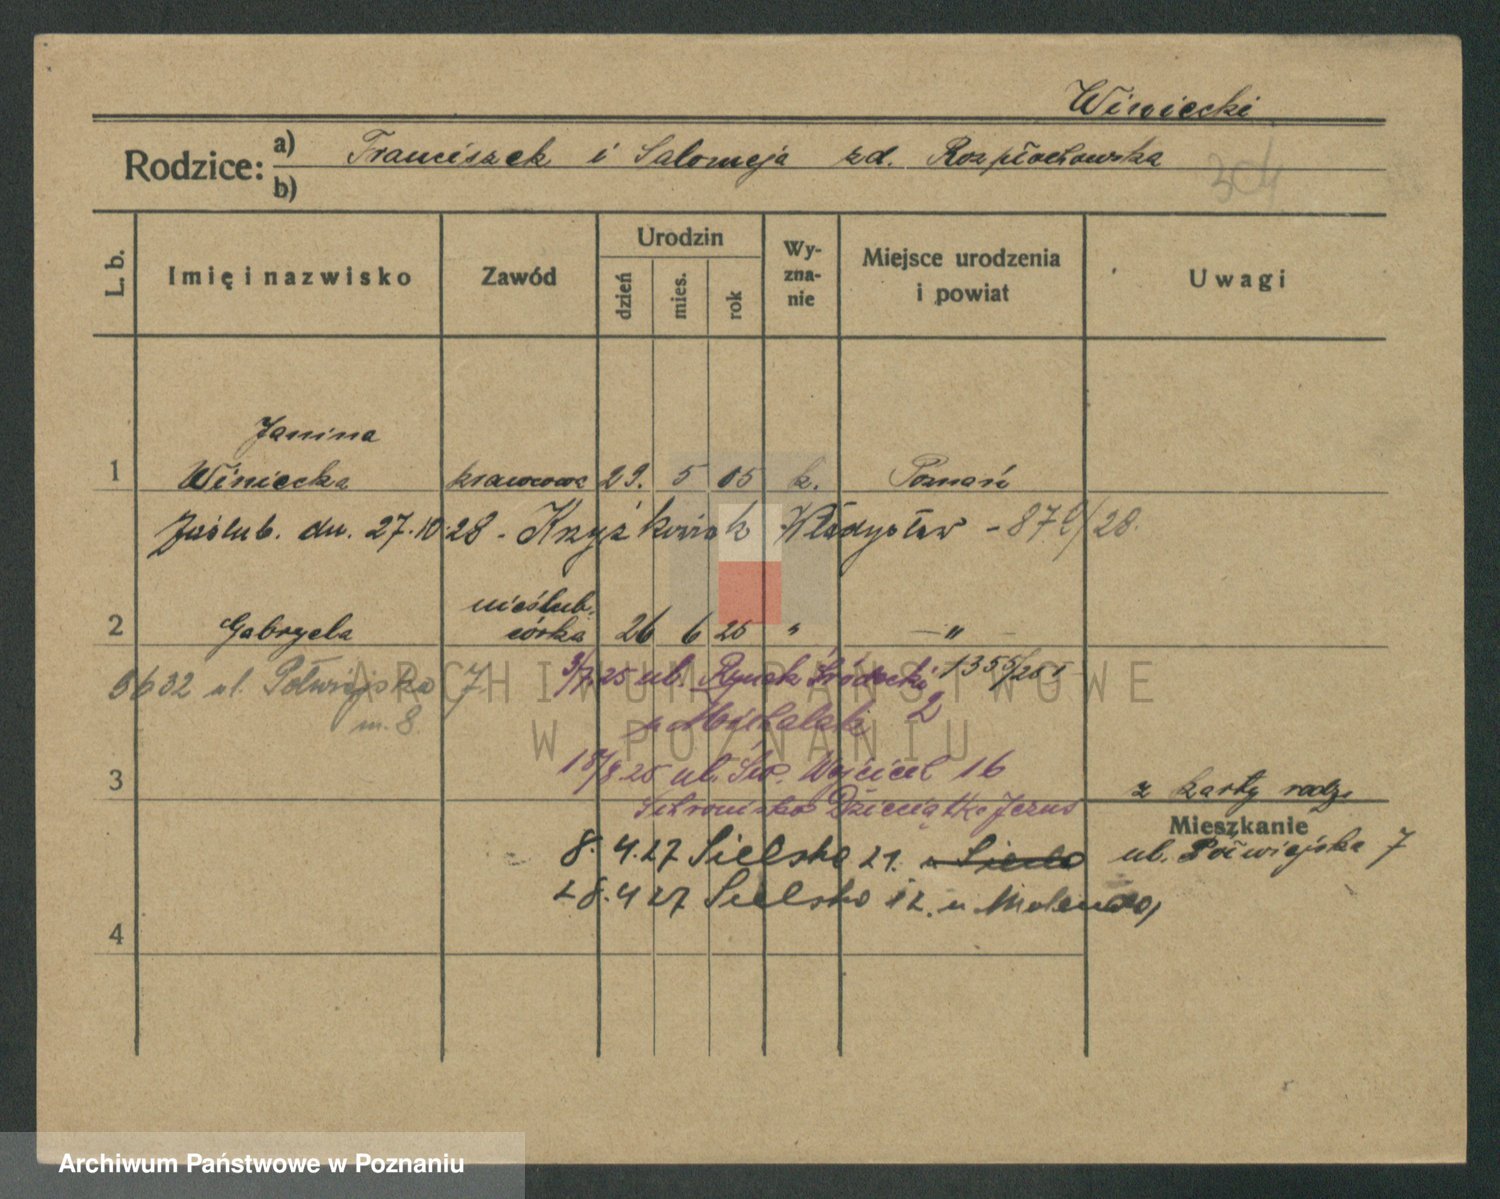 Winiecki
Rodzice: a) Franciszek i Salomeja zd. Rozpłochowska
b)
304
L. b.
Imię i nazwisko
Zawód
Urodzin
dzień
mies.
rok
Wy-
zna-
nie
Miejsce urodzenia
i powiat
Uwagi
Janina
1 Winiecka krawcowa 29. 5 05 k. Poznań
Zaślub. dn. 27.10.28 - Krzyżkowiak Władysław - 878/28.
nieślub.
2 Gabryela córka 26 6 25 " — " —
5632 ul. Półwiejska 7
m. 8
3/7.25 ul. Rynek Śródecki 1355/25 I
u Michalak 2
18/8 25 ul. Św. Wojciech 16
3
z karty rodz.
Schronisko Dzieciątka Jezus
Mieszkanie
ul. Półwiejska 7
8. 4.27 Sielska 21.
28.4 27 Sielska 12. u Molendy
4
ARCHIWUM PAŃSTWOWE
W POZNANIU
Archiwum Państwowe w Poznaniu